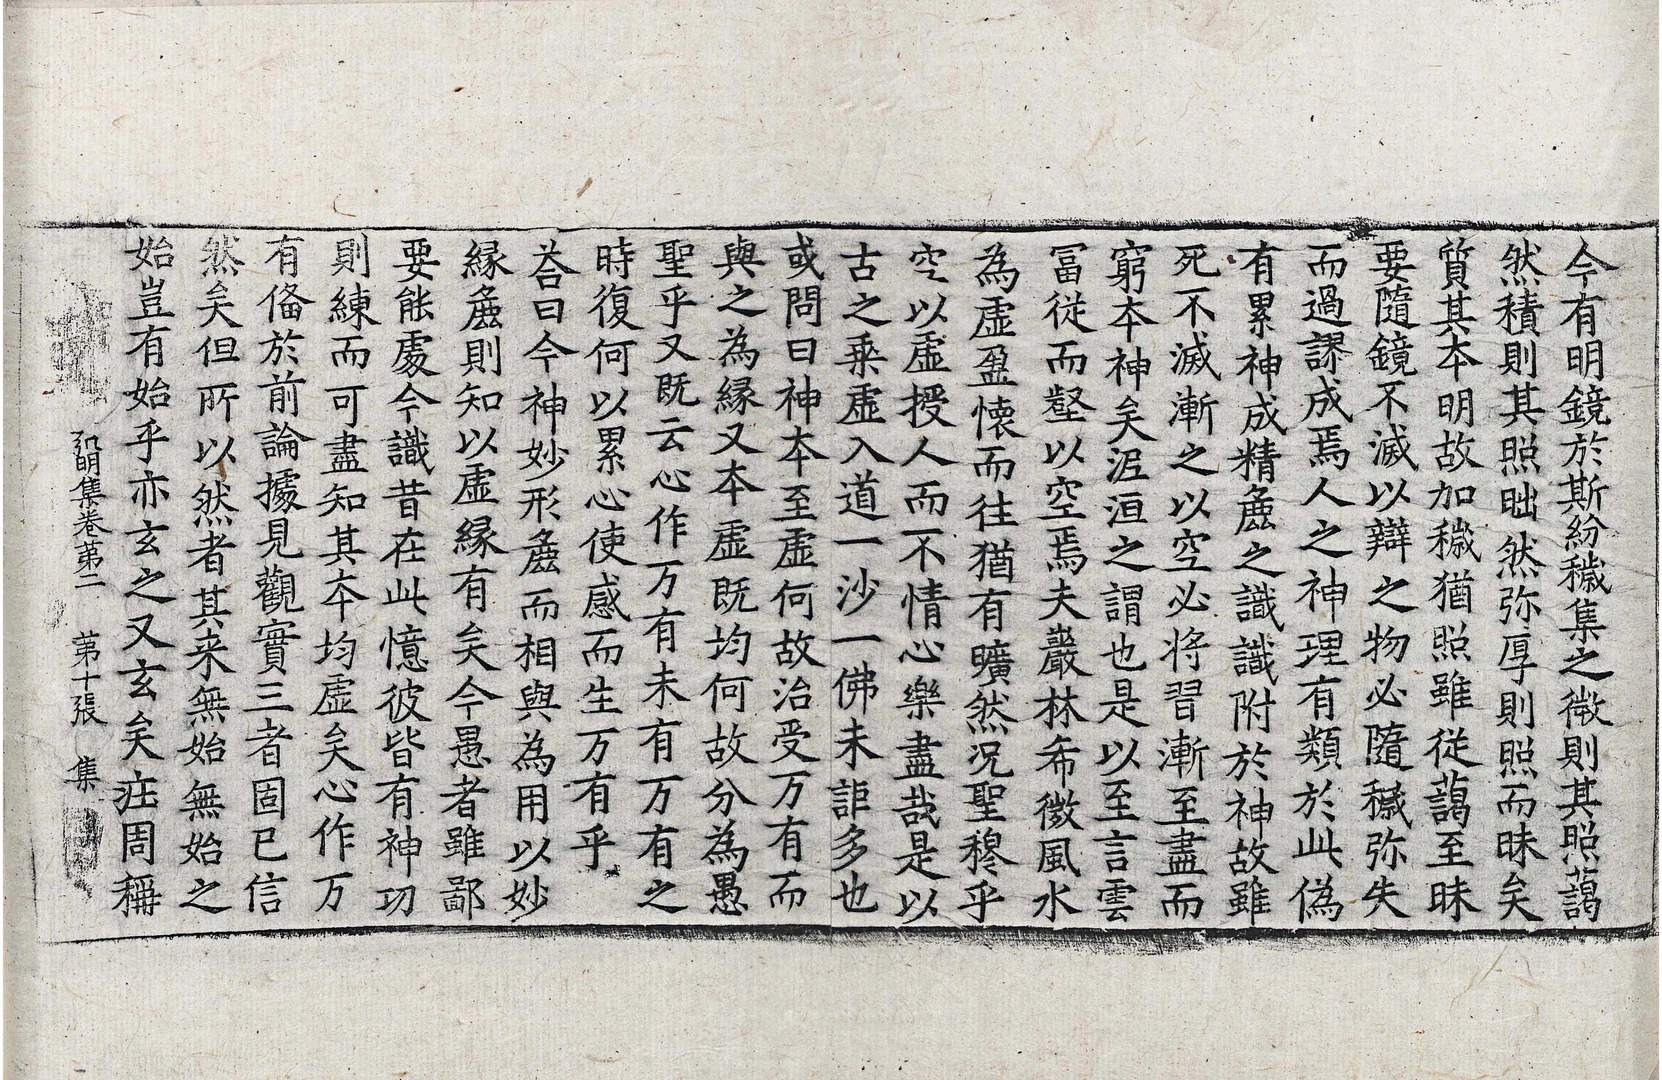 今有明鏡於斯紛穢集之微則其照藹
然積則其照朏然弥厚則照而昧矣
質其本明故加穢猶照雖從藹至昧
要隨鏡不滅以辯之物必隨穢弥失
而過謬成焉人之神理有類於此偽
有累神成精麁之識識附於神故雖
死不滅漸之以空必將習漸至盡而
窮本神矣泥洹之謂也是以至言雲
富從而壑以空焉夫巖林希微風水
為虛盈懷而往猶有曠然況聖穆乎
空以虛授人而不情心樂盡哉是以
古之乘虛入道一沙一佛未詎多也
或問曰神本至虛何故沾受万有而
與之為緣又本虛既均何故分為愚
聖乎又既云心作万有未有万有之
時復何以累心使感而生万有乎
荅曰今神妙形麁而相與為用以妙
緣麁則知以虛緣有矣今愚者雖鄙
要能處今識昔在此憶彼皆有神功
則練而可盡知其本均虛矣心作万
有俻於前論據見觀實三者固已信
然矣但所以然者其来無始無始之
始豈有始乎亦玄之又玄矣莊周稱
弘明集卷第二 第十張 集